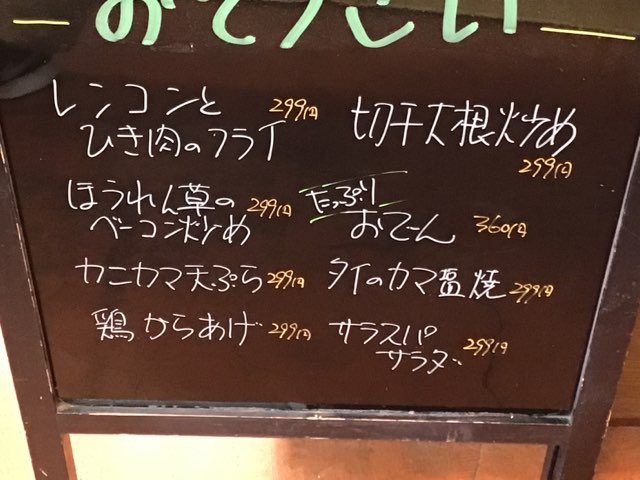 レンコンと
ひき肉のフライ 299円
ほうれん草の
ベーコン炒め 299円
カニカマ天ぷら 299円
鶏からあげ 299円
切干大根炒め
299円
たっぷり
おでーん 360円
タイのカマ塩焼 299円
サラスパ
サラダ 299円